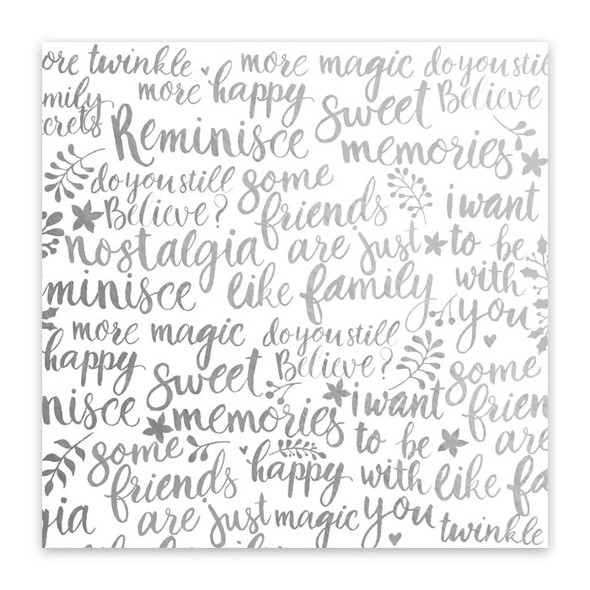 ore twinkle more magic do you stil
mily more happy sweet Believe
crets Reminisce memories
do you still some i want
Believe? friends
nostalgia are just to be
minisce like family with
you
more magic do you still
happy Believe? some
sweet
nisce memories i want frien
some to be are
friends happy with like fa
gia are just magic you twinkle